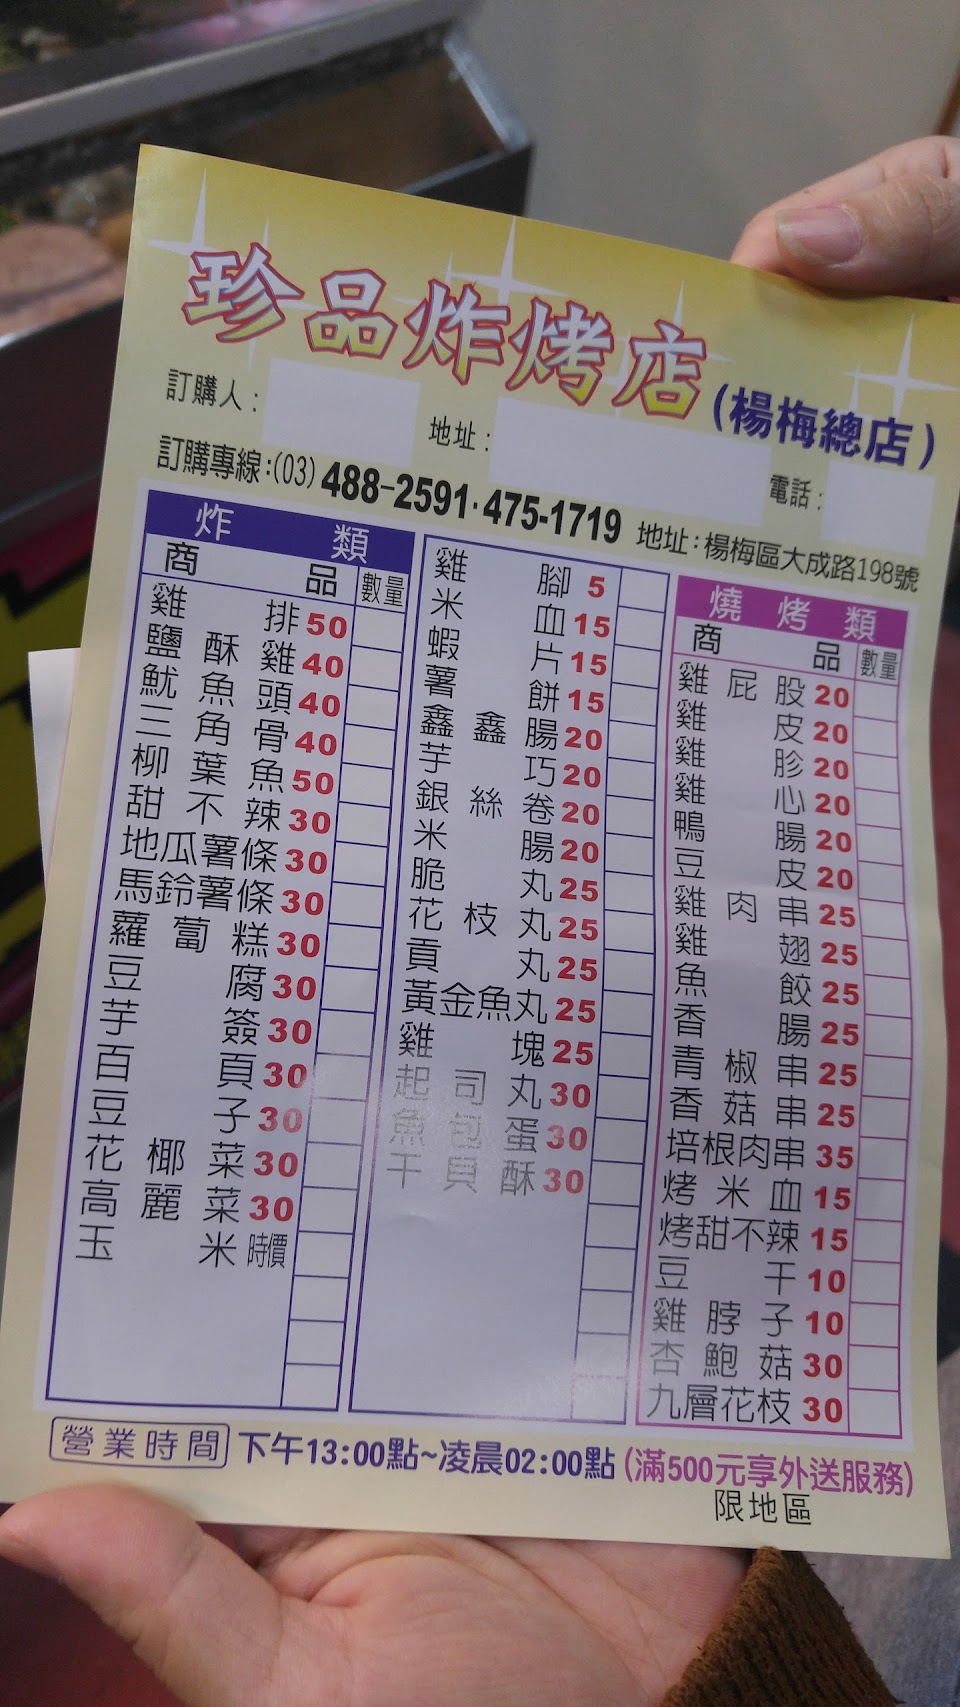 珍品炸烤店(楊梅總店)
訂購人: 地址: 電話:
訂購專線:(03)488-2591·475-1719 地址:楊梅區大成路198號
炸類
商品 數量
雞排50
鹽酥雞40
魷魚頭40
三角骨40
柳葉魚50
甜不辣30
地瓜薯條30
馬鈴薯條30
蘿蔔糕30
豆腐30
芋簽30
百頁30
豆子30
花椰菜30
高麗菜30
玉米時價
雞腳5
米血15
蝦片15
薯餅15
鑫鑫腸20
芋巧20
銀絲卷20
米腸20
脆丸25
花枝丸25
貢丸25
黃金魚丸25
雞塊25
起司丸30
魚包蛋30
干貝酥30
燒烤類
商品 數量
雞屁股20
雞皮20
雞胗20
雞心20
鴨腸20
豆皮20
雞肉串25
雞翅25
魚餃25
香腸25
青椒串25
香菇串25
培根肉串35
烤米血15
烤甜不辣15
豆干10
雞脖子10
杏鮑菇30
九層花枝30
營業時間 下午13:00點~凌晨02:00點(滿500元享外送服務)
限地區